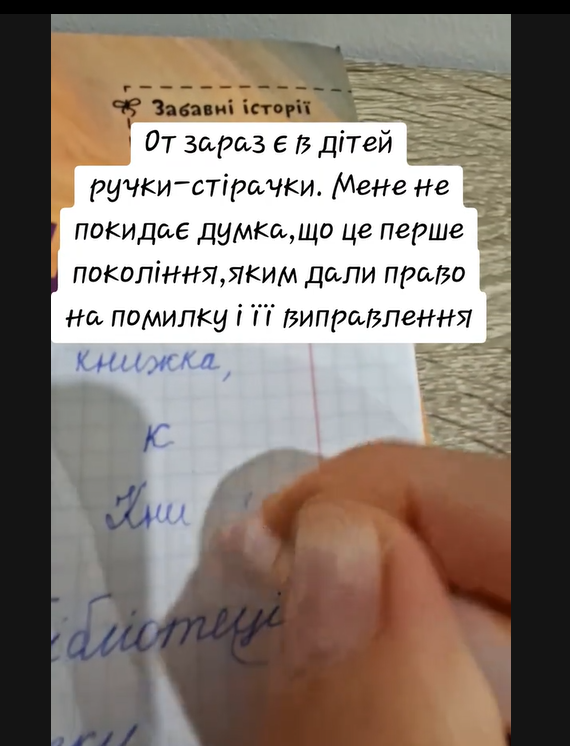 Забавні історії
От зараз є в дітей
ручки-стірачки. Мене не
покидає думка,що це перше
покоління,яким дали право
на помилку і її виправлення
книжка,
К
Кни
ібліотеці